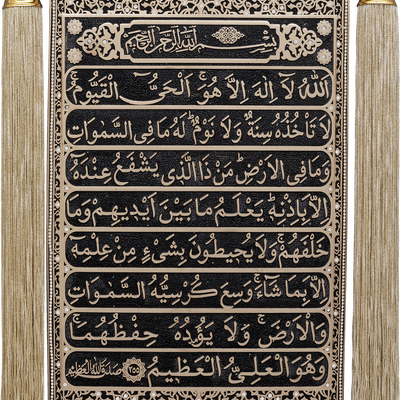 بِسْمِ اللهِ الرَّحْمٰنِ الرَّحِيمِ
اَللهُ لَآ اِلٰهَ اِلَّا هُوَۚ اَلْحَيُّ الْقَيُّومُۚ
لَا تَأْخُذُهُ سِنَةٌ وَلَا نَوْمٌۜ لَهُ مَا فِي السَّمٰوَاتِ
وَمَا فِي الْاَرْضِۜ مَنْ ذَا الَّذ۪ي يَشْفَعُ عِنْدَهُٓ
اِلَّا بِاِذْنِه۪ۜ يَعْلَمُ مَا بَيْنَ اَيْد۪يهِمْ وَمَا
خَلْفَهُمْۚ وَلَا يُح۪يطُونَ بِشَيْءٍ مِنْ عِلْمِه۪ٓ
اِلَّا بِمَا شَآءَۚ وَسِعَ كُرْسِيُّهُ السَّمٰوَاتِ
وَالْاَرْضَۚ وَلَا يَؤُ۫دُهُ حِفْظُهُمَاۚ
وَهُوَ الْعَلِيُّ الْعَظ۪يمُ ﴿٢٥٥﴾ صَدَقَ اللهُ الْعَظِيمُ